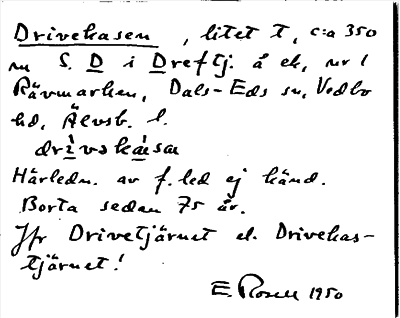 Drivekasen, litet t, c:a 350
m S. D i Dreftj. å ek, nr 1
Rävmarken, Dals-Eds sn, Vedbo
hd, Älvsb. l.
drìvəkàsən
Härledn. av f. led ej känd.
Borta sedan 75 år.
Jfr Drivetjärnet el. Drivekas-
tjärnet!
E. Rosell 1950